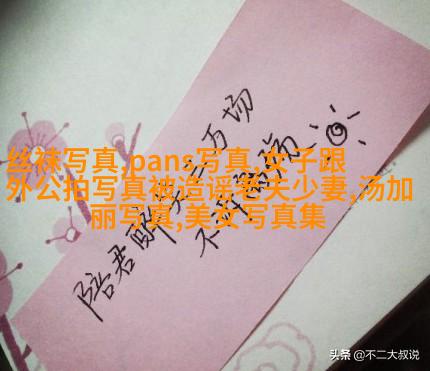 丝袜写真,pans写真,女子跟
外公拍写真被造谣老夫少妻,汤加
丽写真,美女写真集
陪君醉笑三万场
不诉离殇
头条 @不二大叔说